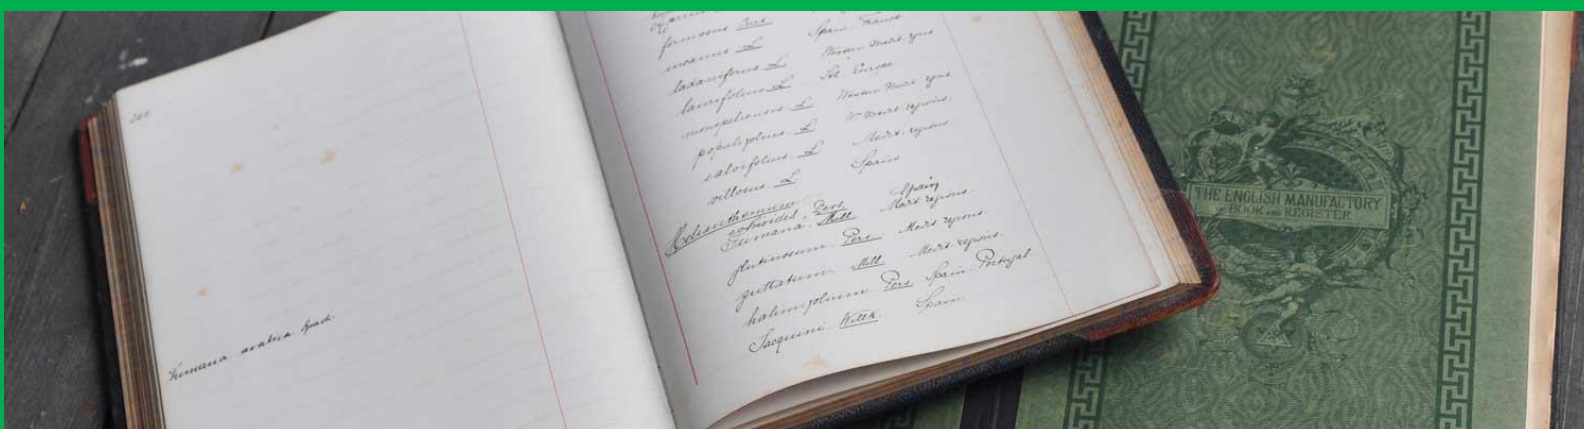 264
Fumana arabica Spach
formosus Curt
incanus L Spain France
ladaniferus L Western Medit. regions
laurifolius L S.W. Europe
monspeliensis L Western Medit. regions
populifolius L W. Medit. regions.
salvifolius L Medit. regions.
villosus L Spain
Helianthemum
ocimoides, Pers. Spain
Fumana, Mill. Medit. regions.
glutinosum Pers. Medit. regions.
guttatum Mill. Medit. regions.
halimifolium Pers. Spain. Portugal.
Jacquini Willk Spain
THE ENGLISH MANUFACTORY
BOOK AND REGISTER